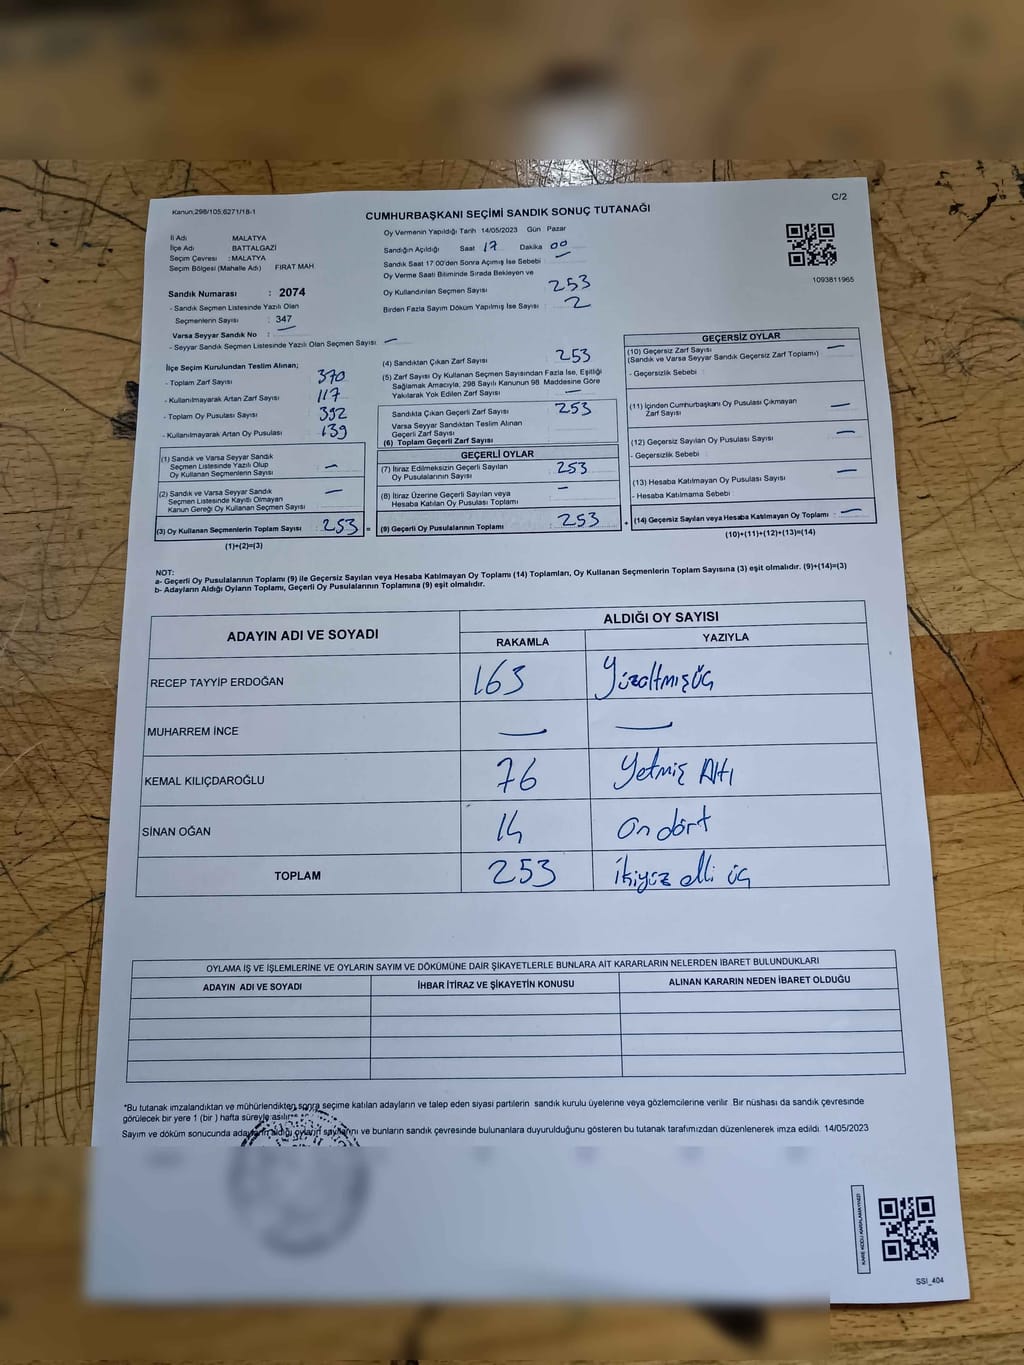 Kanun;298/105;6271/18-1
CUMHURBAŞKANI SEÇİMİ SANDIK SONUÇ TUTANAĞI
C/2
İl Adı MALATYA
İlçe Adı BATTALGAZİ
Seçim Çevresi :MALATYA
Seçim Bölgesi (Mahalle Adı) FIRAT MAH
Sandık Numarası : 2074
- Sandık Seçmen Listesinde Yazılı Olan
Seçmenlerin Sayısı : 347
Varsa Seyyar Sandık No : —
- Seyyar Sandık Seçmen Listesinde Yazılı Olan Seçmen Sayısı : —
Oy Vermenin Yapıldığı Tarih 14/05/2023 Gün Pazar
Sandığın Açıldığı Saat :17 Dakika 00
Sandık Saat 17:00'den Sonra Açımış İse Sebebi —
Oy Verme Saati Bitiminde Sırada Bekleyen ve
Oy Kullandırılan Seçmen Sayısı 253
Birden Fazla Sayım Döküm Yapılmış İse Sayısı : 2
1093811965
İlçe Seçim Kurulundan Teslim Alınan;
- Toplam Zarf Sayısı 370
- Kullanılmayarak Artan Zarf Sayısı : 117
- Toplam Oy Pusulası Sayısı : 392
- Kullanılmayarak Artan Oy Pusulası : 139
(1) Sandık ve Varsa Seyyar Sandık
Seçmen Listesinde Yazılı Olup
Oy Kullanan Seçmenlerin Sayısı : —
(2) Sandık ve Varsa Seyyar Sandık
Seçmen Listesinde Kayıtlı Olmayan
Kanun Gereği Oy Kullanan Seçmen Sayısı : —
(3) Oy Kullanan Seçmenlerin Toplam Sayısı : 253 =
(1)+(2)=(3)
(4) Sandıktan Çıkan Zarf Sayısı : 253
(5) Zarf Sayısı Oy Kullanan Seçmen Sayısından Fazla İse, Eşitliği
Sağlamak Amacıyla, 298 Sayılı Kanunun 98. Maddesine Göre
Yakılarak Yok Edilen Zarf Sayısı : —
Sandıkta Çıkan Geçerli Zarf Sayısı : 253
Varsa Seyyar Sandıktan Teslim Alınan
Geçerli Zarf Sayısı
(6) Toplam Geçerli Zarf Sayısı
GEÇERLİ OYLAR
(7) İtiraz Edilmeksizin Geçerli Sayılan
Oy Pusulalarının Sayısı : 253
(8) İtiraz Üzerine Geçerli Sayılan veya
Hesaba Katılan Oy Pusulası Toplamı : —
(9) Geçerli Oy Pusulalarının Toplamı : 253 +
GEÇERSİZ OYLAR
(10) Geçersiz Zarf Sayısı : —
(Sandık ve Varsa Seyyar Sandık Geçersiz Zarf Toplamı)
- Geçersizlik Sebebi :
(11) İçinden Cumhurbaşkanı Oy Pusulası Çıkmayan
Zarf Sayısı : —
(12) Geçersiz Sayılan Oy Pusulası Sayısı : —
- Geçersizlik Sebebi :
(13) Hesaba Katılmayan Oy Pusulası Sayısı : —
- Hesaba Katılmama Sebebi :
(14) Geçersiz Sayılan veya Hesaba Katılmayan Oy Toplamı : —
(10)+(11)+(12)+(13)=(14)
NOT:
a- Geçerli Oy Pusulalarının Toplamı (9) ile Geçersiz Sayılan veya Hesaba Katılmayan Oy Toplamı (14) Toplamları, Oy Kullanan Seçmenlerin Toplam Sayısına (3) eşit olmalıdır. (9)+(14)=(3)
b- Adayların Aldığı Oyların Toplamı, Geçerli Oy Pusulalarının Toplamına (9) eşit olmalıdır.
ADAYIN ADI VE SOYADI ALDIĞI OY SAYISI
RAKAMLA YAZIYLA
RECEP TAYYİP ERDOĞAN 163 Yüzaltmışüç
MUHARREM İNCE — —
KEMAL KILIÇDAROĞLU 76 Yetmiş Altı
SİNAN OĞAN 14 On dört
TOPLAM 253 İkiyüz elli üç
OYLAMA İŞ VE İŞLEMLERİNE VE OYLARIN SAYIM VE DÖKÜMÜNE DAİR ŞİKAYETLERLE BUNLARA AİT KARARLARIN NELERDEN İBARET BULUNDUKLARI
ADAYIN ADI VE SOYADI İHBAR İTİRAZ VE ŞİKAYETİN KONUSU ALINAN KARARIN NEDEN İBARET OLDUĞU
*Bu tutanak imzalandıktan ve mühürlendikten sonra seçime katılan adayların ve talep eden siyasi partilerin sandık kurulu üyelerine veya gözlemcilerine verilir. Bir nüshası da sandık çevresinde
görülecek bir yere 1 (bir ) hafta süreyle asılır.
Sayım ve döküm sonucunda adayların aldığı oyların sayılarını ve bunların sandık çevresinde bulunanlara duyurulduğunu gösteren bu tutanak tarafımızdan düzenlenerek imza edildi. 14/05/2023
KARE KODU KARALAMAYINIZ!
SSI_404